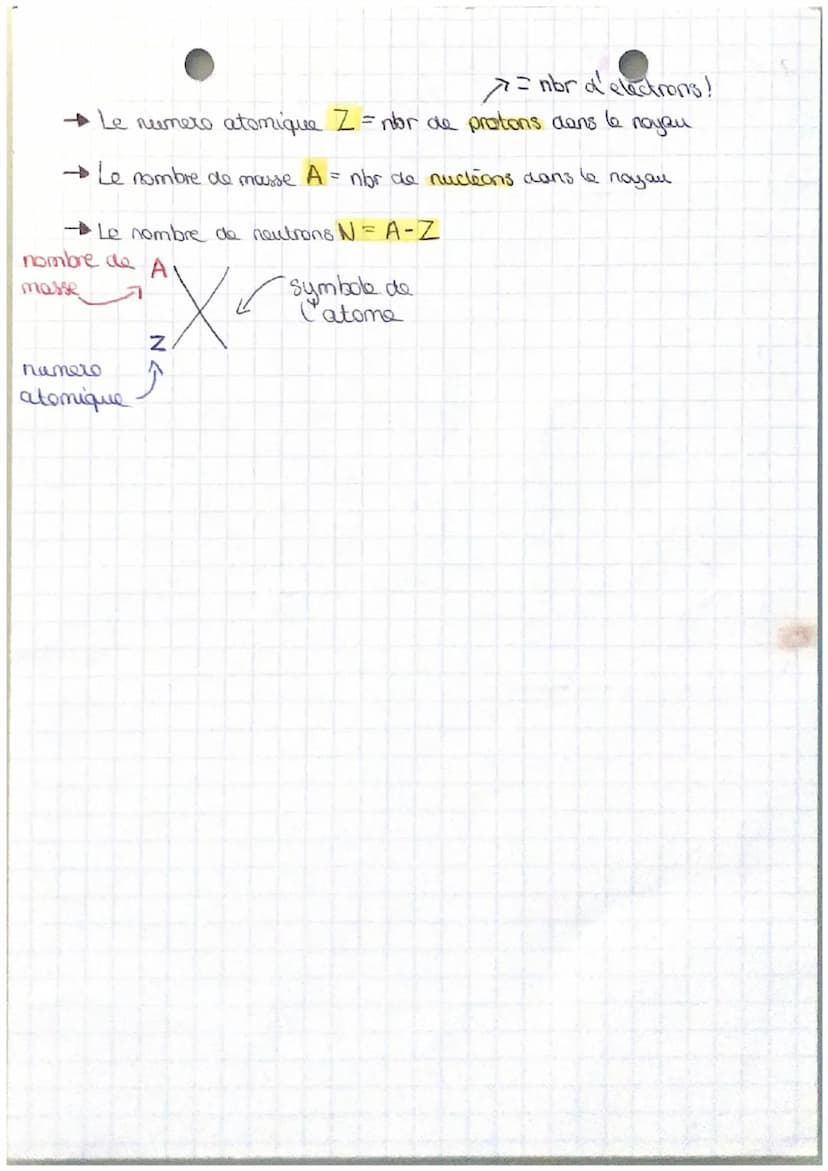 ↗ = nbr d'electrons!
→ Le numero atomique Z = nbr de protons dans le noyau
→ Le nombre de masse A = nbr de nucléons dans le noyau
→ Le nombre de neutrons N = A - Z
nombre de
masse
A
X
symbole de
l'atome
Z
numero
atomique